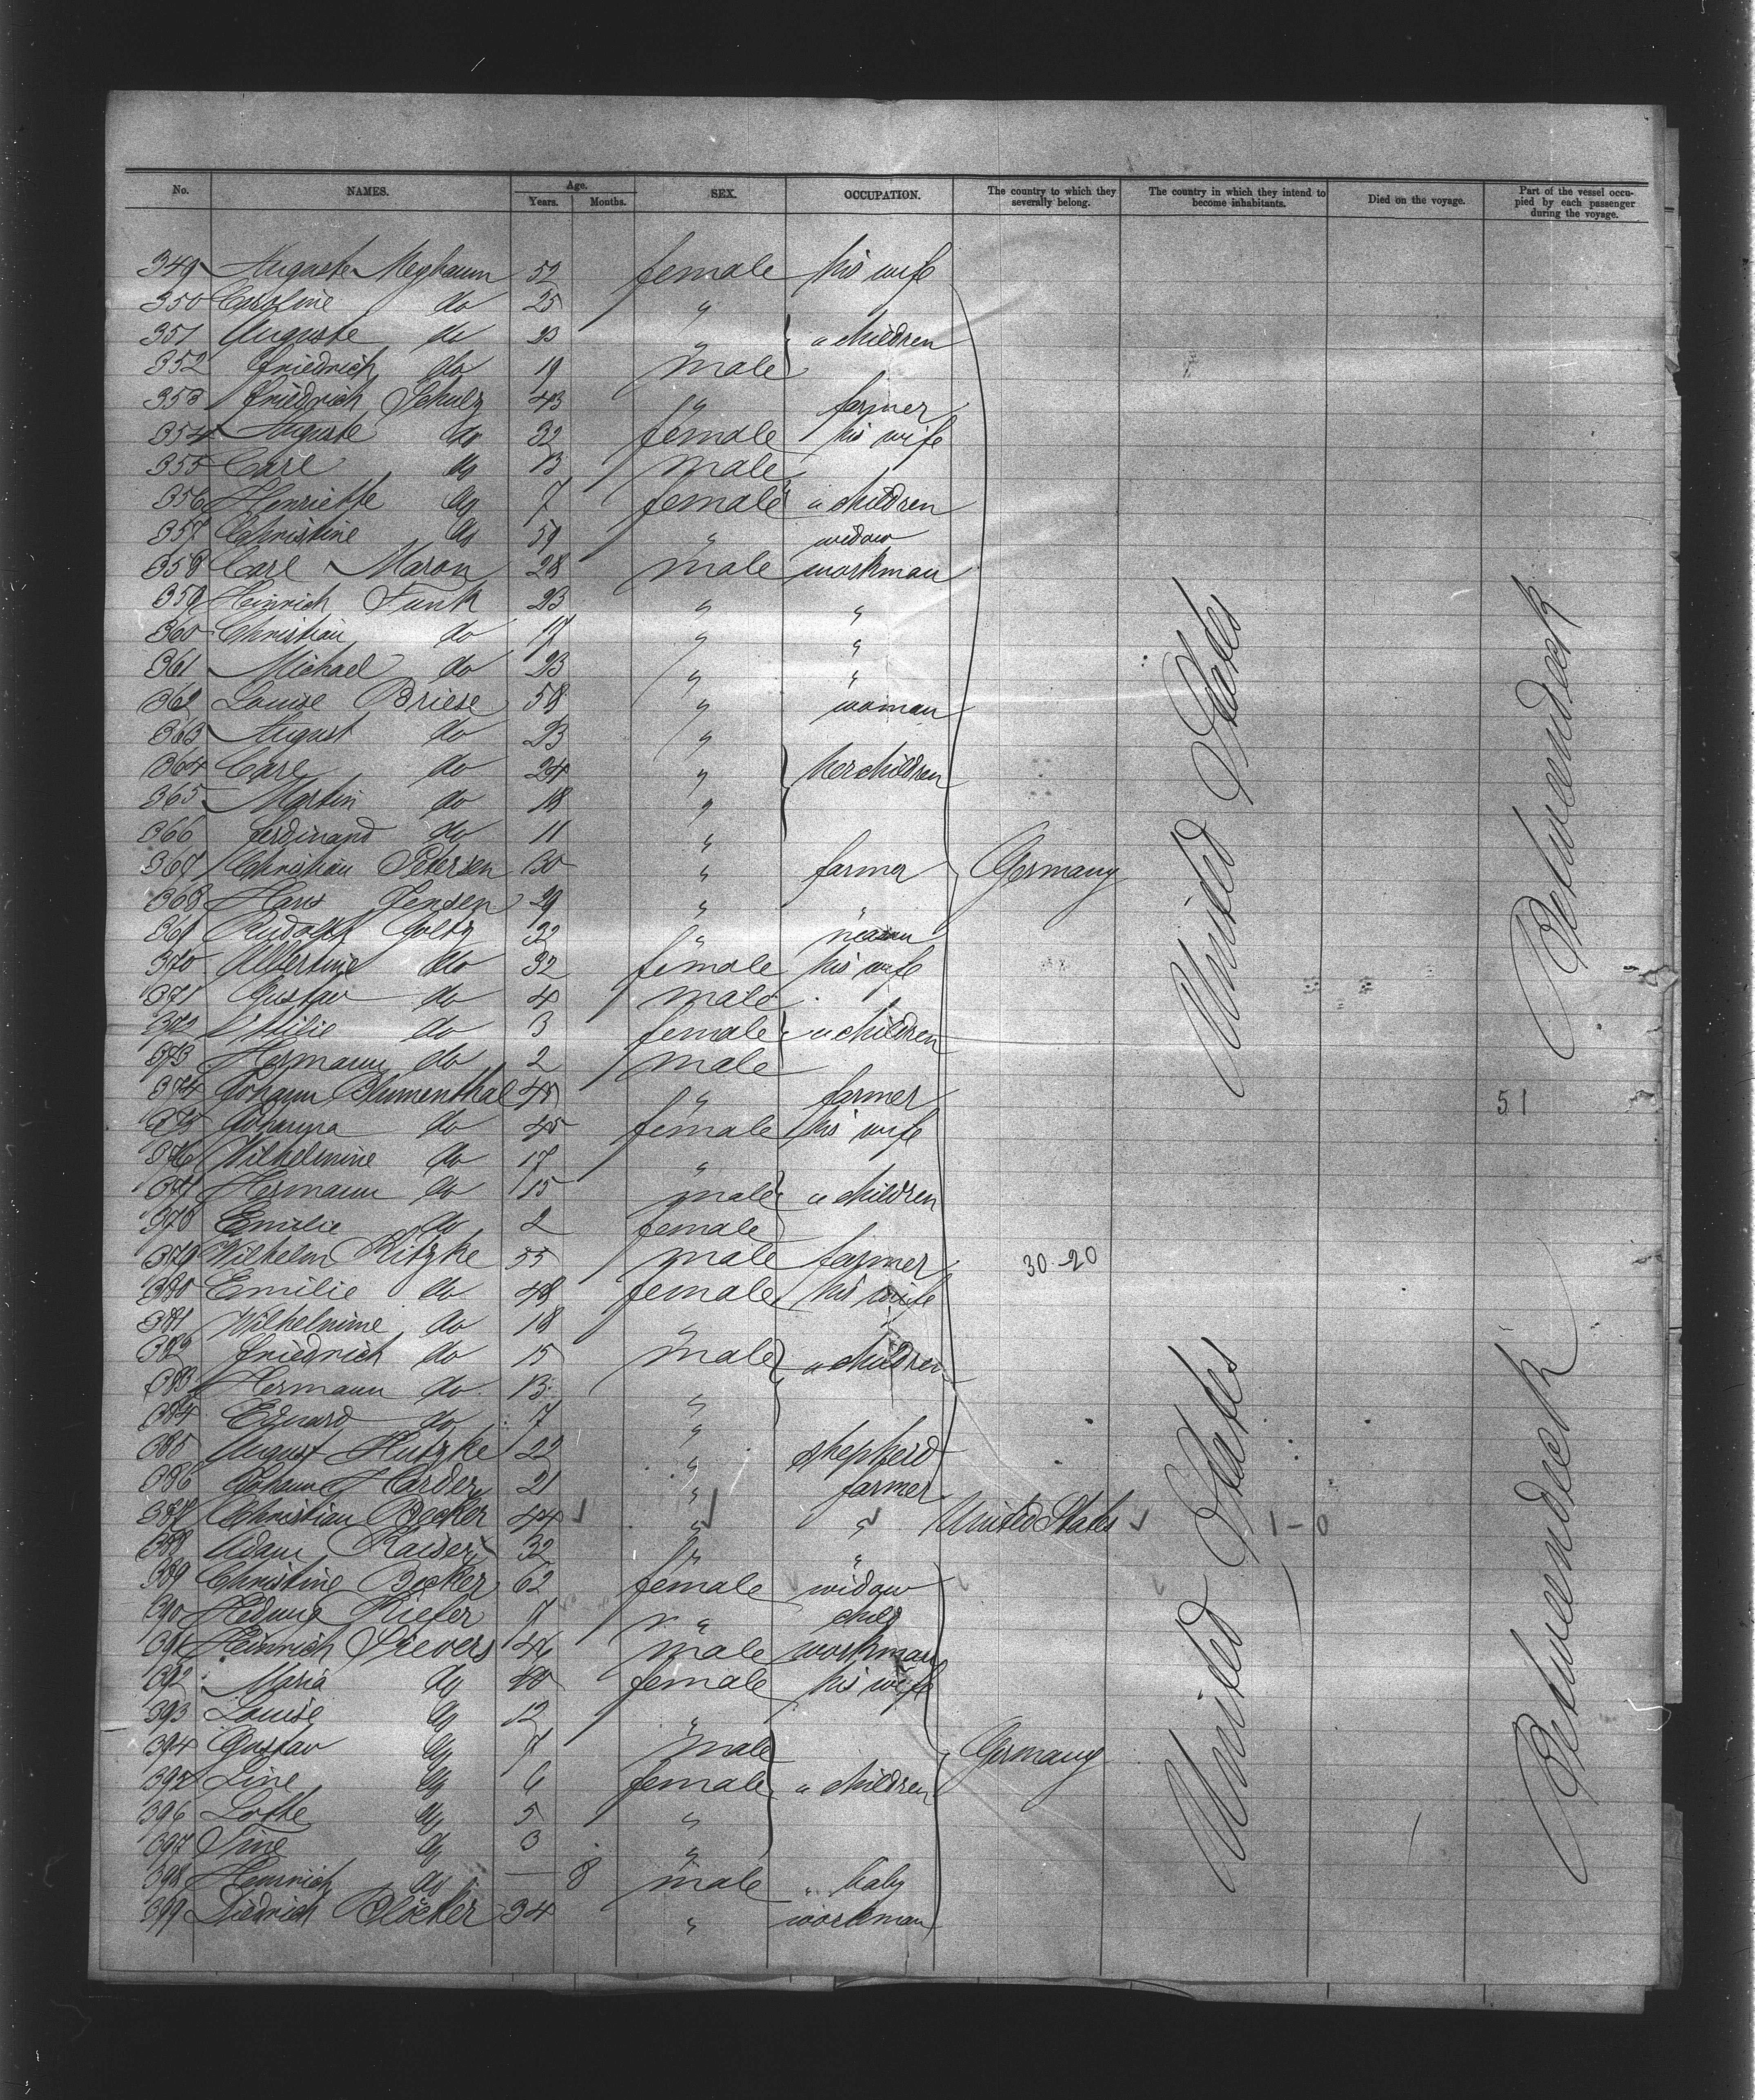 No. NAMES. Age. Years. Months. SEX. OCCUPATION. The country to which they severally belong. The country in which they intend to become inhabitants. Died on the voyage. Part of the vessel occupied by each passenger during the voyage.
349 Auguste 52 female his wife
350 Caroline do 25 "
351 Auguste do 23 " " children
352 Friedrich do 19 male
353 Friedrich Schulz 43 " farmer
354 Auguste do 32 female his wife
355 Carl do 13 male
356 Henriette do 7 female " children
357 Christine do 59 " widow
358 Carl Maron 28 male workman
359 Heinrich Funk 23 " "
360 Christian do 17 " "
361 Michael do 23 " "
362 Louise Briese 58 " woman
363 August do 23 "
364 Carl do 24 " her children
365 Martin do 18 "
366 Ferdinand do 11 "
367 Christian Petersen 30 " farmer Germany United States Betweendeck
368 Hans Jensen 29 " "
369 Rudolph Goltz 32 "
370 Albertine do 32 female his wife
371 Gustav do 4 male
372 Ottilie do 3 female " children
373 Hermann do 2 male
374 Johann Blumenthal 48 " farmer 51
375 Johanna do 45 female his wife
376 Wilhelmine do 17 "
377 Hermann do 15 male " children
378 Emilie do 2 female
379 Wilhelm Ritzke 55 male farmer 30-20
380 Emilie do 48 female his wife
381 Wilhelmine do 18 "
382 Friedrich do 15 male " children
383 Hermann do 13 "
384 Eduard do 7 "
385 August Hutzke 22 " shepherd
386 Johann Harder 21 " farmer
387 Christian Becker 44 " " United States 1-0
388 Adam Kaiser 32 " "
389 Christine Becker 62 female widow
390 Hedwig Kiefer 7 " child
391 Heinrich Sievers 46 male workman
392 Maria do 40 female his wife
393 Louise do 12 "
394 Gustav do 7 male Germany United States Betweendeck
395 Line do 6 female " children
396 Lotte do 5 "
397 Tine do 3 "
398 Heinrich do — 8 male " baby
399 Diedrich Blöcker 34 " workman